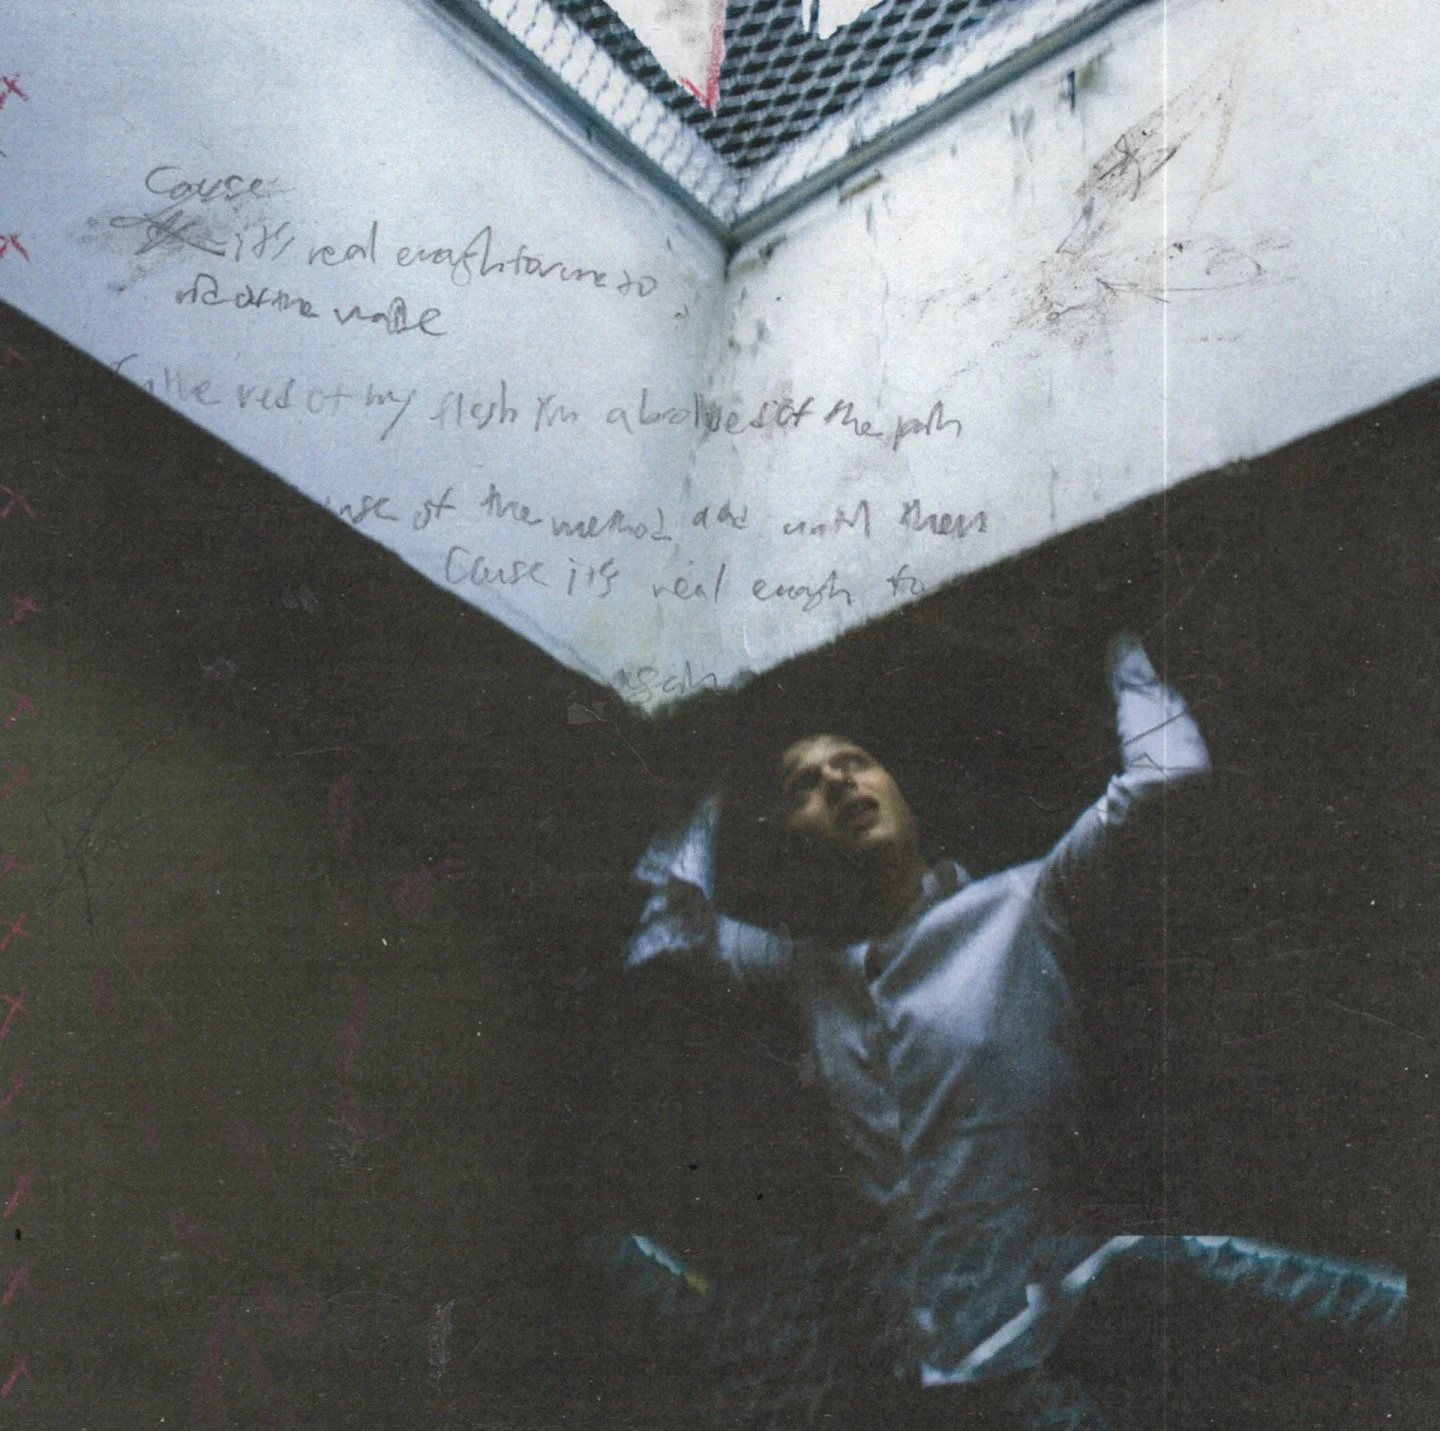 Cause
it's real enough for me to
rid of the
red of my flesh I'm absolved of the path
use of the method and until then
Cause it's real enough to
again